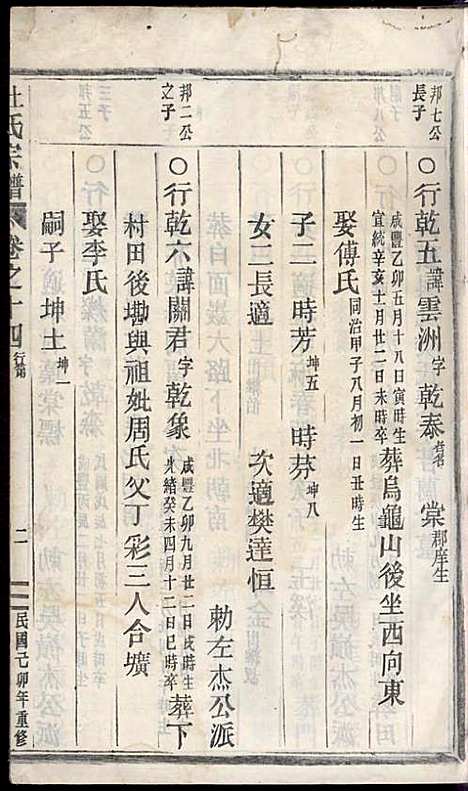 邦七公長子
○行乾五諱雲洲字乾泰榜名棠郡庠生
咸豐乙卯五月十八日寅時生
宣統辛亥十月廿二日未時卒
葬烏龜山後坐西向東
娶傅氏同治甲子八月初一日丑時生
子二 時芳坤五 時芬坤八
女二長適 次適樊達恒
勅左杰公派
邦二公之子
○行乾六諱關君字乾象
咸豐乙卯九月廿二日戌時生
光緒癸未四月十二日巳時卒
葬下
村田後墈與祖妣周氏父丁彩三人合壙
娶李氏
嗣子坤土坤一
杜氏宗譜 卷之十四 行第 二 民國己卯年重修